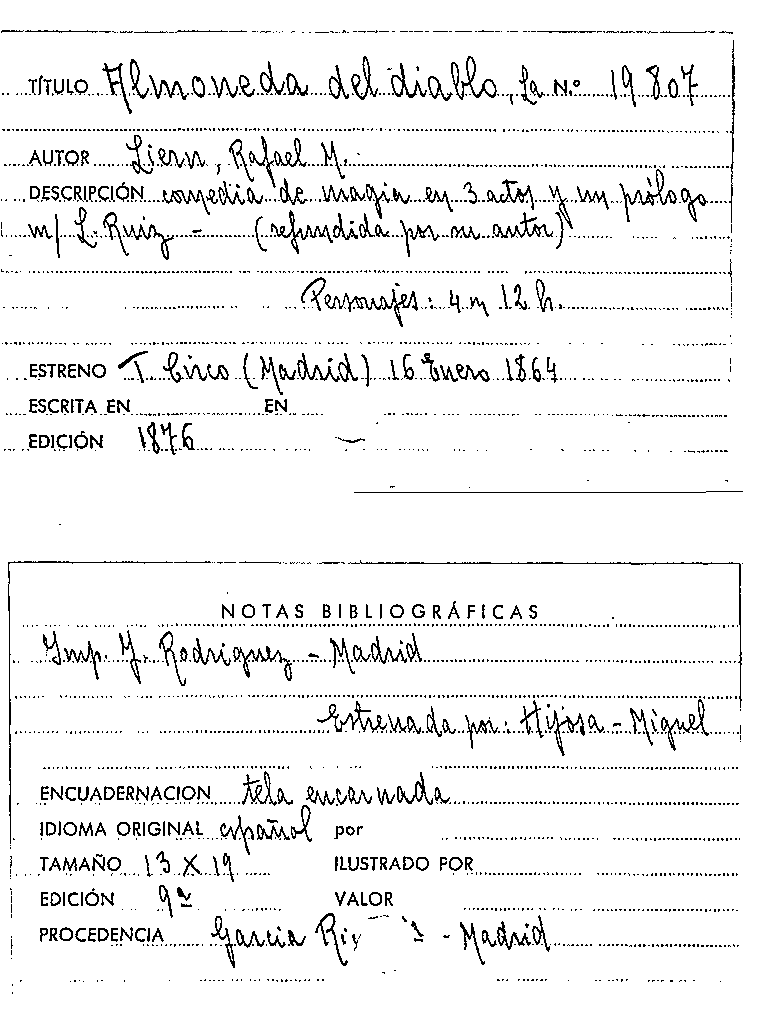 TÍTULO Almoneda del diablo, La N.º 19807
AUTOR Liern, Rafael M.
DESCRIPCIÓN comedia de magia en 3 actos y un prólogo
m/ L. Ruiz - (refundida por su autor)
Personajes: 4 m 12 h.
ESTRENO T. Circo (Madrid) 16 Enero 1864
ESCRITA EN EN
EDICIÓN 1876
NOTAS BIBLIOGRÁFICAS
Imp. J. Rodriguez - Madrid
Estrenada por: Hijosa - Miguel
ENCUADERNACION tela encarnada
IDIOMA ORIGINAL español por
TAMAÑO 13 X 19 ILUSTRADO POR
EDICIÓN 9ª VALOR
PROCEDENCIA Garcia - Madrid